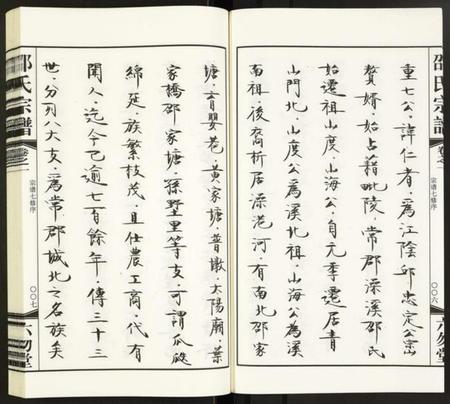 邵氏宗譜
卷之
宗谱七修序
〇〇六
六勿堂
重七公，諱仁者，為江陰邱忠定公宗山
贅婿，始占藉毗陵，常郡澡溪邵氏
始遷祖山度公，山海公，自元季遷居青
山門北，山度公為溪北祖，山海公為溪
南祖，後裔析居澡港河，有南北邵家
塘，育嬰巷，黄家塘，普墩，太陽廟，葉
家橋邵家塘，孫墅里等支，可謂瓜瓞
綿延，族繁枝茂，且仕農工商，代有
聞人，迄今已逾七百餘年，傳三十三
世，分列八大支，為常郡城北之名族矣
邵氏宗譜
卷之
宗谱七修序
〇〇七
六勿堂